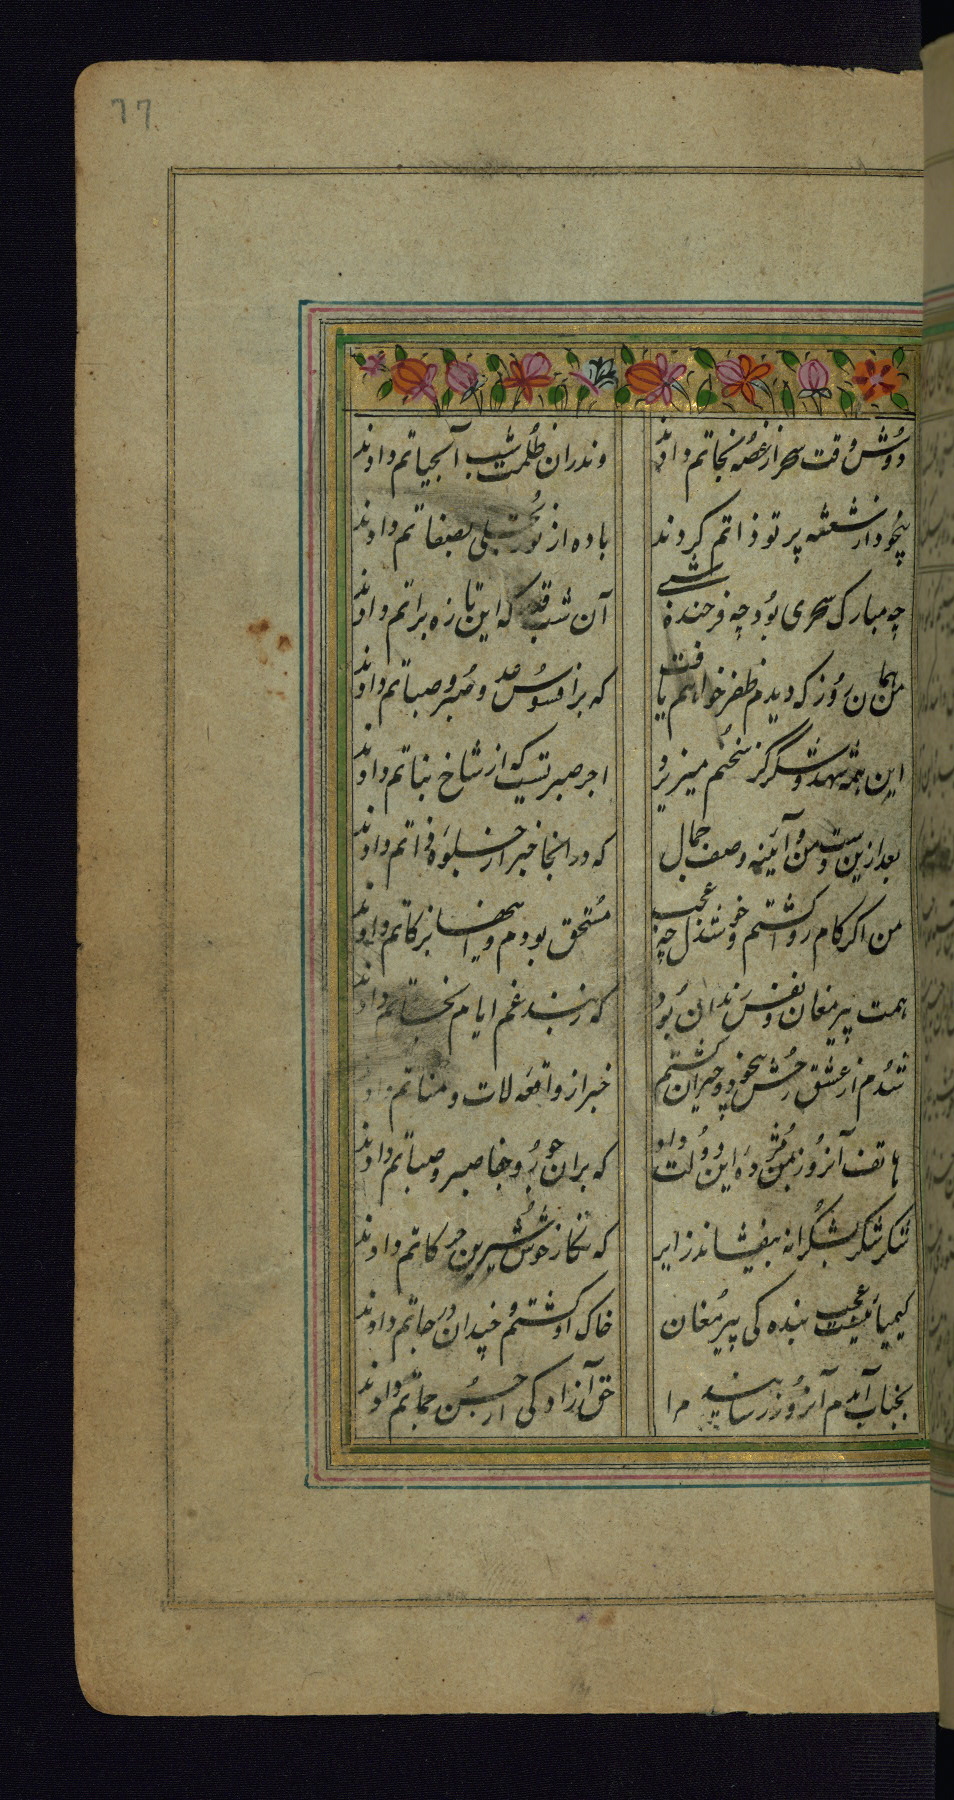 77
دوش وقت سحر از غصه نجاتم دادند
وندران ظلمت شب آبحیاتم دادند
بیخود از شعشه پرتو ذاتم کردند
باده از نور تجلی بصفاتم دادند
چه مبارک سحری بود چه فرخنده شبی
آن شب قدر که این تازه براتم دادند
من همان روز که دیدم ظفر خواهم یافت
که بر افسوس صد و صبر و صباتم دادند
این همه شهد و شکر کز سخنم میریزد
اجر صبریست که از شاخ نباتم دادند
بعد ازین دست من و آئینه وصف جمال
که در آنجا خبر از جلوه ذاتم دادند
من اکر کام روا کشتم و خوشدل چه عجب
مستحق بودم و اینها بزکاتم دادند
همت پیر مغان و نفس رندان بود
که ز بند غم ایام نجاتم دادند
شدم از عشق رخش بیخود و حیران کشتم
خبر از واقعه لات و مناتم دادند
هاتف آنروز بمن مژده این دولت داد
که بران جور و جفا صبر و صباتم دادند
شکر شکر بشکرانه بیفشاند زایر
که نکار خوش شیرین حرکاتم دادند
کیمیائیست عجب بنده کی پیر مغان
خاک او کشتم و چندان درجاتم دادند
بجناب آمدم آنروز رسانید مرا
خق آزاد کی از حسن مماتم دادند